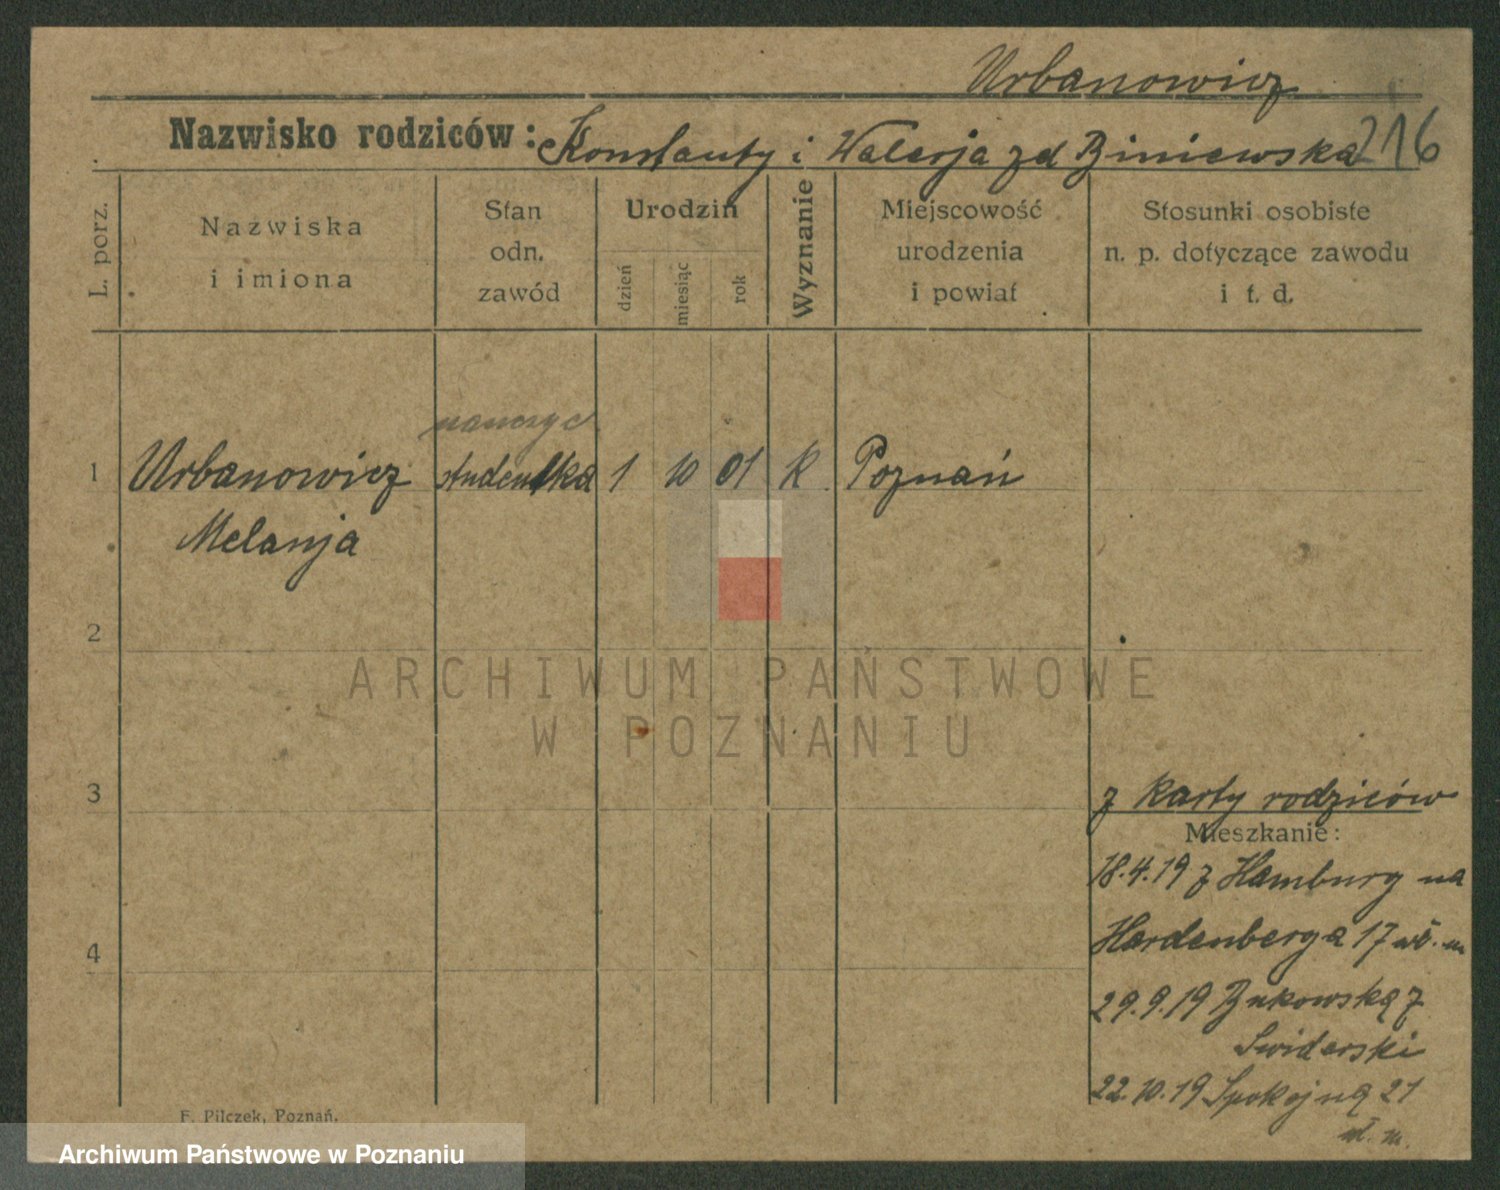 Urbanowicz
Nazwisko rodziców: Konstanty i Walerja zd Biniewska 216
L. porz.
Nazwiska
i imiona
Stan
odn.
zawód
Urodzin
dzień
miesiąc
rok
Wyznanie
Miejscowość
urodzenia
i powiat
Stosunki osobiste
n. p. dotyczące zawodu
i t. d.
nauczyc
1 Urbanowicz studentka 1 10 01 K. Poznań
Melanja
2
ARCHIWUM PAŃSTWOWE
W POZNANIU
3
z karty rodziców
Mieszkanie:
18.4.19 z Hamburg na
4
Hardenberga 17 wł. m
29.9.19 Bukowską 7
Swiderski
22.10.19 Spokojną 21
wł. m.
F. Pilczek, Poznań.
Archiwum Państwowe w Poznaniu